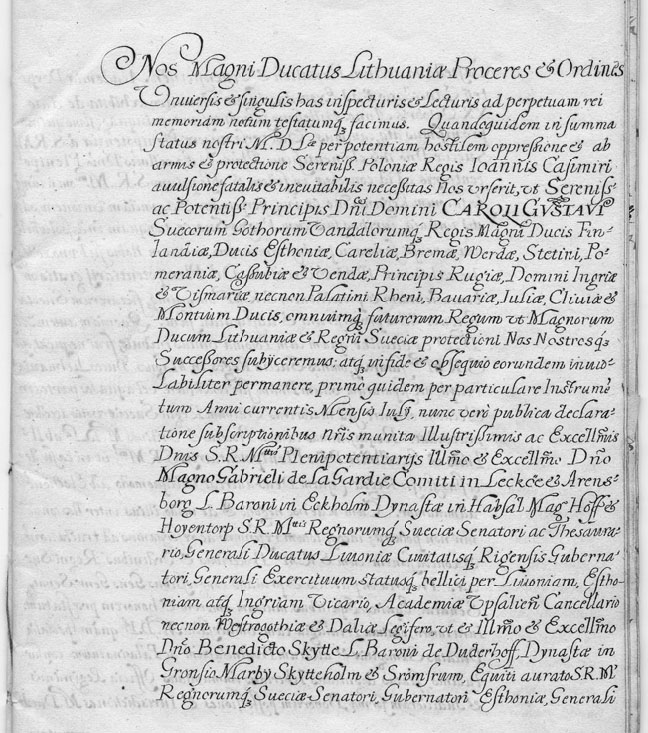 Nos Magni Ducatus Lithuaniæ Proceres & Ordines
Vniversis & singulis has inspecturis & Lecturis ad perpetuam rei
memoriam notum testatumqȝ facimus. Quandoquidem in summa
status nostri M. D. Læ per potentiam hostilem oppressione & ab
armis & protectione Sereniss. Poloniæ Regis Ioannis Casimiri
avulsione fatalis & inevitabilis necessitas Nos urserit, vt Sereniss
ac Potentiss. Principis Dn̄i Domini CAROLI GVSTAVI
Suecorum Gothorum Vandalorumqȝ Regis Magni Ducis Fin-
landiæ, Ducis Esthoniæ, Careliæ, Bremæ, Werdæ, Stetini, Po-
meraniæ, Cassubiæ & Vendæ, Principis Rugiæ, Domini Ingriæ
& Vismariæ, necnon Palatini Rheni, Bavariæ, Iuliæ, Cliviæ &
Montium Ducis, omniumqȝ futurorum Regum vt Magnorum
Ducum Lithuaniæ & Regni Sueciæ protectioni Nos Nostrosqȝ
Successores subijceremus, atqȝ in fide & obsequio eorundem invio-
labiliter permanere, prime quidem per particulare Instrumē
tum Anni currentis Mensis Iulij, nunc verò publica declara-
tione subscriptionibus nr̄is munita Illustrissimis ac Excellm̄is
Dnis S. R. Mttis Plenipotentiarijs Illm̄o & Excellm̄o Dn̄o
Magno Gabrieli de La Gardie Comiti in Leckőe & Arens-
borg L. Baroni in Eckholm Dynastæ in Habsal Mag. Hoff &
Hoyentorp S. R. Mttis Regnorumqȝ Sueciæ Senatori ac Thesaura-
rio, Generali Ducatus Livoniæ Civitatisqȝ Rigensis Guberna-
tori, Generali Exercituum statusqȝ bellici per Livoniam, Estho-
niam atqȝ Ingriam Vicario, Academiæ Vpsalien̄ Cancellario
necnon Westrogothiæ & Daliæ Legifero, vt & Illm̄o & Excellm̄o
Dn̄o Benedicto Skytte L. Baroni de Duderhoff, Dynastæ in
Gronsio Marby Skytteholm & Srömsrum, Equiti aurato S. R. Mt
Regnorumqȝ Sueciæ Senatori, Gubernatori Esthoniæ, Generali